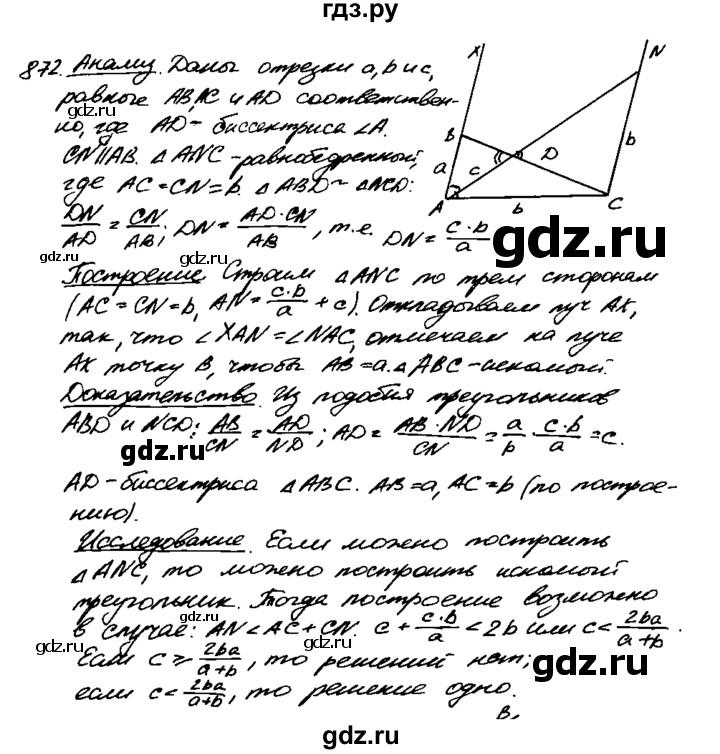 гдз.ру
872. Анализ. Даны отрезки a, b и c,
равные AB, AC и AD соответствен-
но, где AD – биссектриса ∠A.
CN∥AB. △ANC – равнобедренный,
где AC = CN = b. △ABD ~ △NCD:
DN/AD = CN/AB; DN = AD·CN/AB, т.е. DN = c·b/a
X N B D a c b A b C
gdz.ru
gdz.ru
Построение Строим △ANC по трем сторонам
(AC = CN = b, AN = c·b/a + c). Откладываем луч AX,
gdz.ru
так, что ∠XAN = ∠NAC, отмечаем на луче
AX точку B, чтобы AB = a. △ABC – искомый.
Доказательство. Из подобия треугольников
ABD и NCD: AB/CN = AD/ND; AD = AB·ND/CN = a/b · c·b/a = c.
gdz.ru
gdz.ru
AD – биссектриса △ABC. AB = a, AC = b (по построе-
нию).
Исследование. Если можно построить
△ANC, то можно построить искомый
треугольник. Тогда построение возможно
gdz.ru
gdz.ru
в случае: AN < AC + CN. c + c·b/a < 2b или c < 2ba/a+b.
Если c ⩾ 2ba/a+b, то решений нет;
gdz.ru
если c < 2ba/a+b, то решение одно.
В.
gdz.ru
gdz.ru